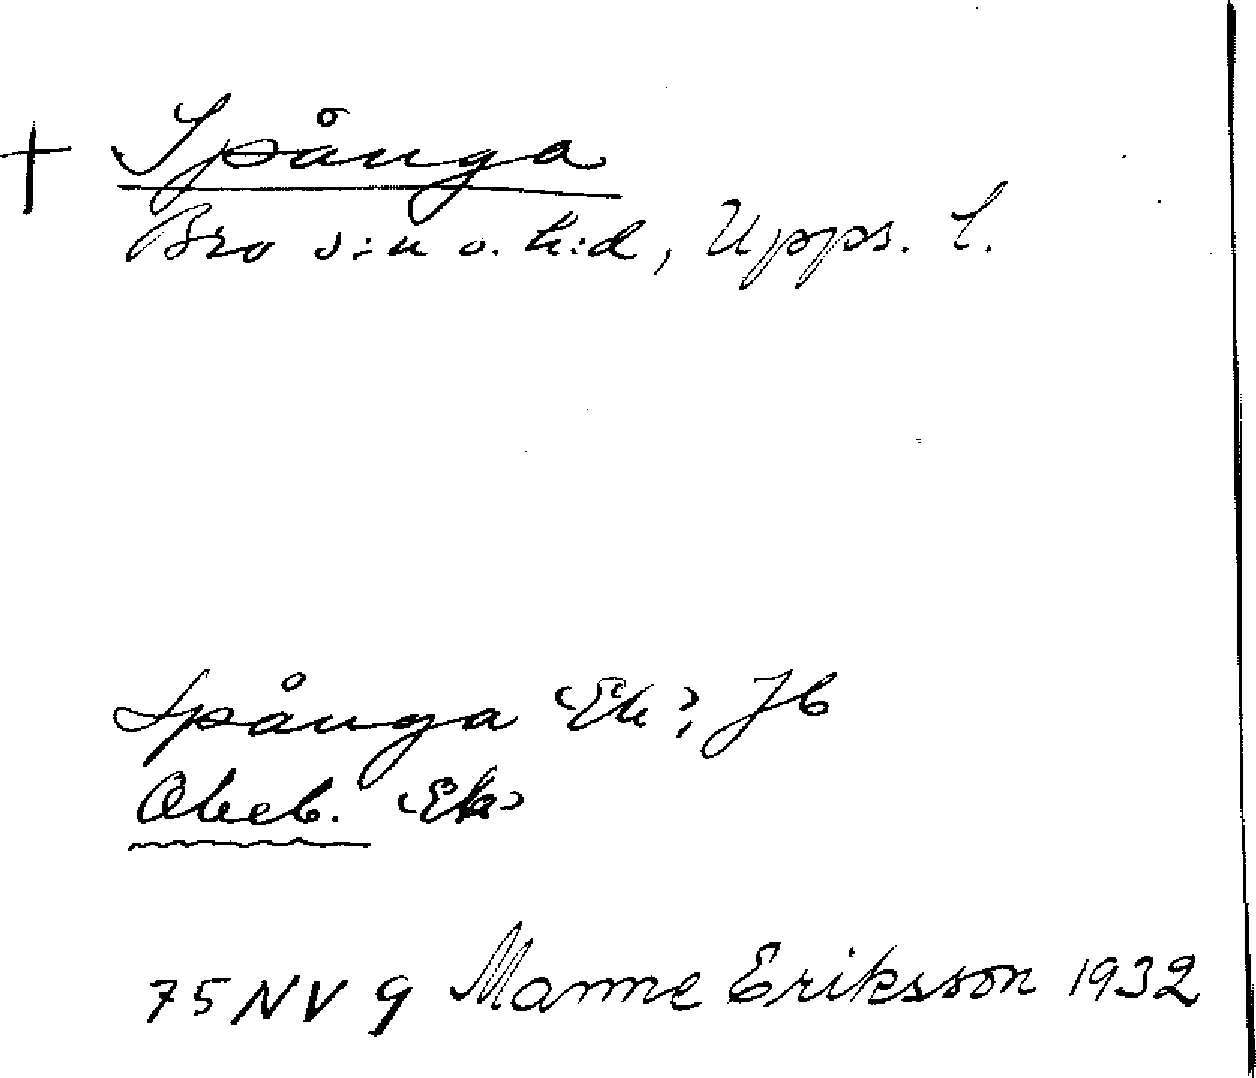 + Spånga
Bro s:n o. h:d, Upps. l.
Spånga <Ek>, Jb
Obeb. <Ek>
75 NV 9 Manne Eriksson 1932